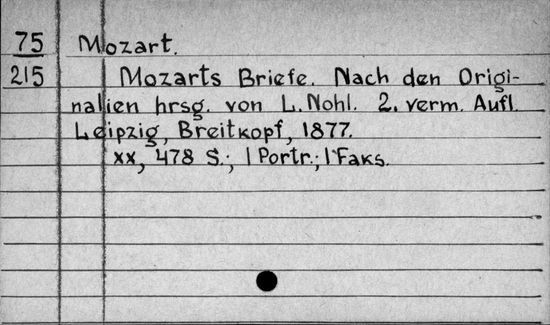 75 Mozart.
215 Mozarts Briefe. Nach den Origi-
nalien hrsg. von L. Nohl. 2. verm. Aufl.
Leipzig, Breitkopf, 1877.
xx, 478 S.; 1 Portr.; 1 Faks.